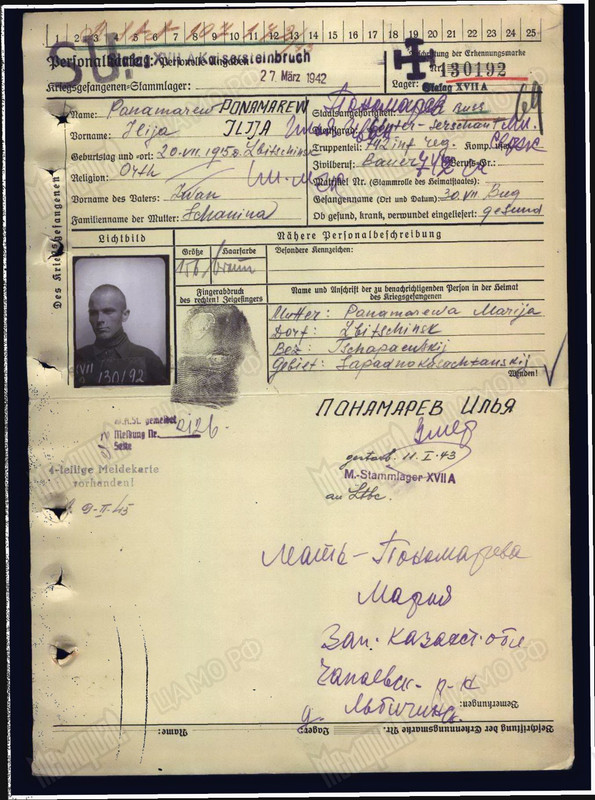 1 2 3 4 5 6 7 8 9 10 11 12 13 14 15 16 17 18 19 20 21 22 23 24 25
SU.
Personalkarte I: Personelle Angaben
XVII A Kaisersteinbruch
27. März 1942
Kriegsgefangenen-Stammlager:
Beschriftung der Erkennungsmarke
Nr. 130192
Lager: Stalag XVII A
Des Kriegsgefangenen
Name: Panamarew PONAMAREW Пономарев
Staatsangehörigkeit: Russ
Vorname: Ilija ILIJA
Dienstgrad:
Geburtstag und -ort: 20.VII.1915
Truppenteil: Komp. usw.:
Religion: Orth
Zivilberuf: Bauer Berufs-Gr.:
Vorname des Vaters: Iwan
Matrikel Nr. (Stammrolle des Heimatstaates):
Gefangennahme (Ort und Datum): 30.VII. Bug
Familienname der Mutter: Schanina
Ob gesund, krank, verwundet eingeliefert: gesund
Lichtbild
Nähere Personalbeschreibung
Größe Haarfarbe Besondere Kennzeichen:
156 braun
Fingerabdruck
des rechten! Zeigefingers
Name und Anschrift der zu benachrichtigenden Person in der Heimat
des Kriegsgefangenen
Mutter: Panamarewa Marija
Dorf: Lbitschinsk
Bez: Tschapaewskij
Gebiet: Sapadnokosachstanskij
Wenden!
XVII A 130192
ПОНАМАРЕВ ИЛЬЯ
W.A.St. gemeldet
Meldung Nr. 212b
Seite
Умер
gestorb. 11.I.43
M.-Stammlager XVII A
4-teilige Meldekarte
vorhanden!
Мать - Пономарева
Мария
Зап. Казахст. обл
Чапаевск. р-н
д. Лбичинск
Bemerkungen:
Beschriftung der Erkennungsmarke Nr.
Lager:
Name:
МЕМОРИАЛ ЦА МО РФ